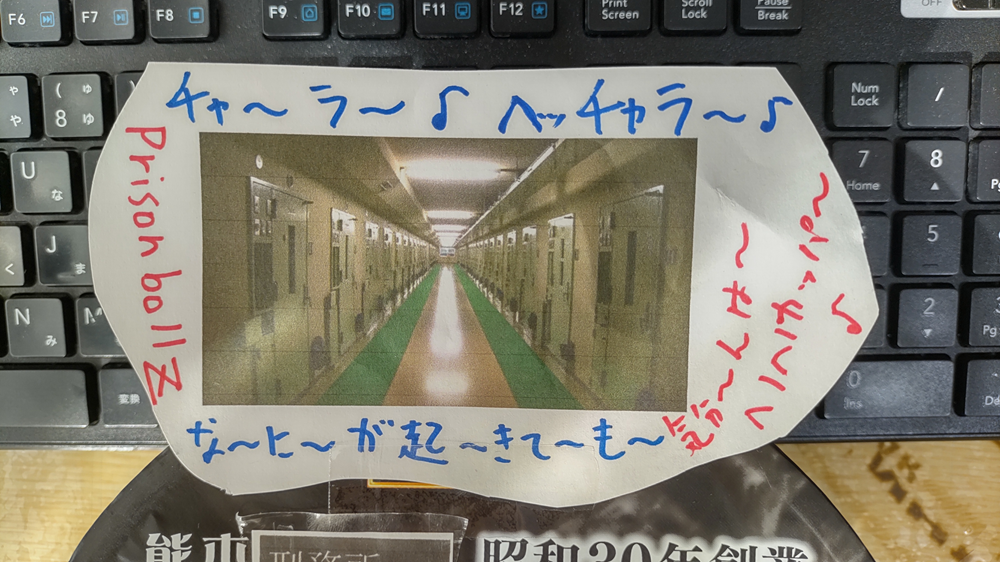 F6
F7
F8
F9
F10
F11
F12
Print
Screen
Scroll
Lock
Pause
Break
OFF
チャ〜ラ〜♪ ヘッチャラ〜♪
Prison ball Z
な〜に〜が起〜きて〜も〜
気分〜んは〜
へのへのカッパ〜♪
や
や
(
ゅ
8
ゆ
U
な
J
ま
N
み
M
<
変換
Num
Lock
/
7
Home
8
5
2
0
Ins
熊本
刑務所
昭和30年創業